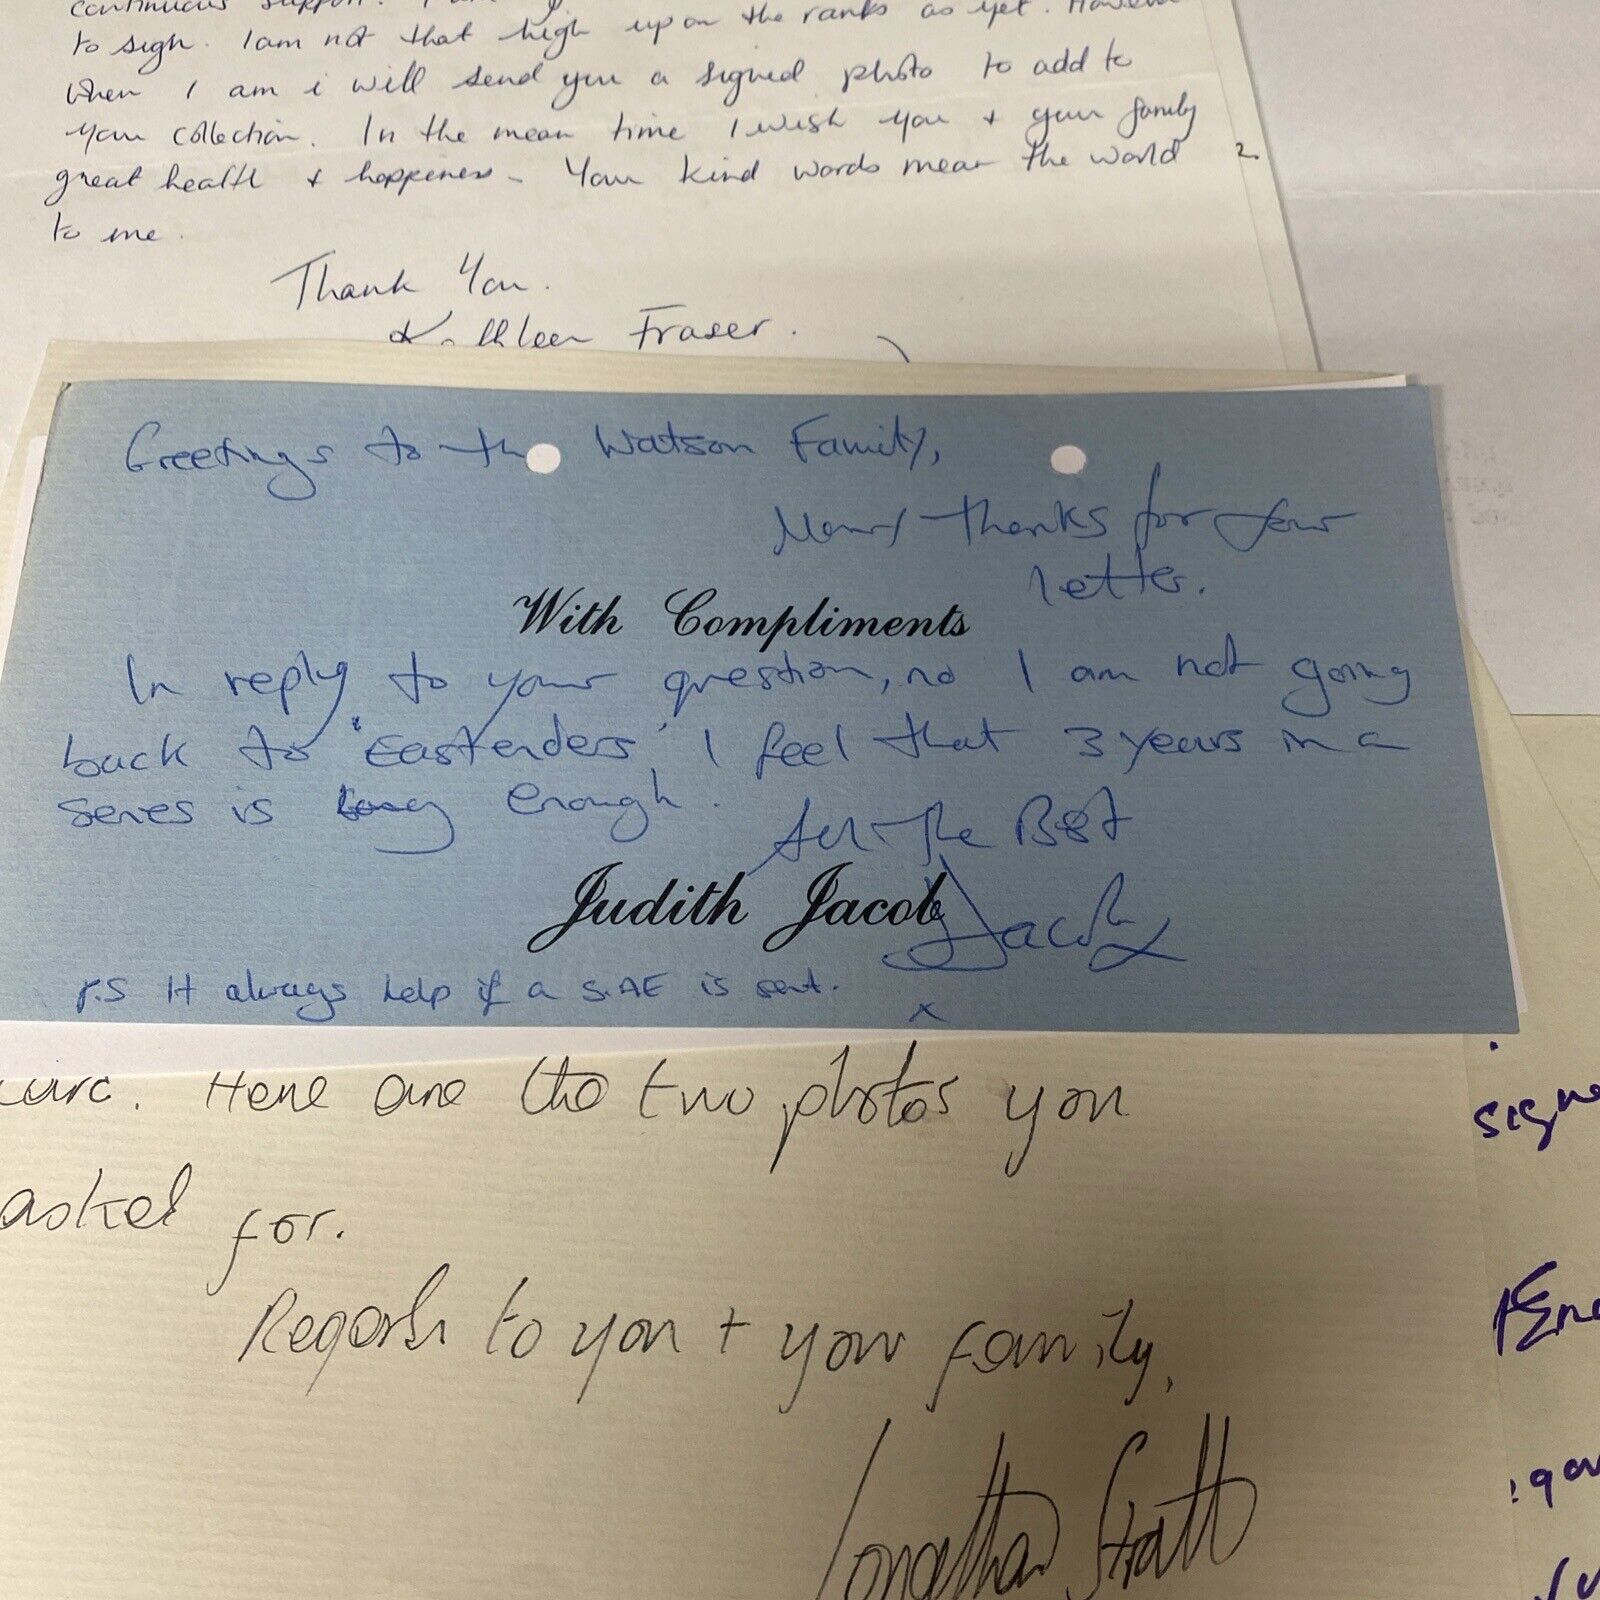 continuous support.
to sigh. I am not that high up on the ranks as yet. However
when I am i will send you a signed photo to add to
your collection. In the mean time I wish you + your family
great health + happiness - Your kind words mean the world
to me.
2.
Thank You.
Kathleen Fraser.
Greetings to the Watson Family,
Many thanks for your
letter.
With Compliments
In reply to your question, no I am not going
back to 'Eastenders' I feel that 3 years in a
series is long enough.
All the Best
Judith Jacob
Jacob
P.S It always help if a S.AE is sent.
x
Here are the two photos you
asked for.
Regards to you + your family,
Jonathan Stratt